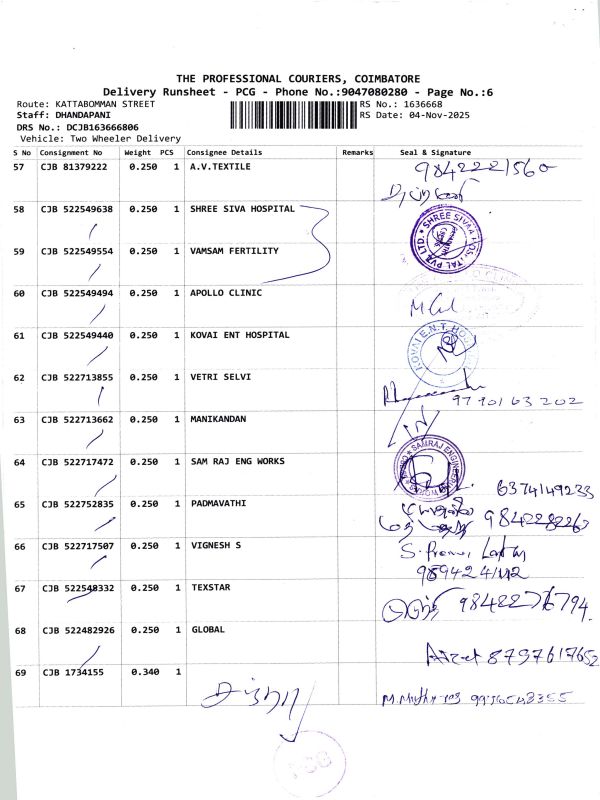 THE PROFESSIONAL COURIERS, COIMBATORE
Delivery Runsheet - PCG - Phone No.:9047080280 - Page No.:6
Route: KATTABOMMAN STREET RS No.: 1636668
Staff: DHANDAPANI RS Date: 04-Nov-2025
DRS No.: DCJB163666806
Vehicle: Two Wheeler Delivery
S No Consignment No Weight PCS Consignee Details Remarks Seal & Signature
57 CJB 81379222 0.250 1 A.V.TEXTILE 9842221560
58 CJB 522549638 0.250 1 SHREE SIVA HOSPITAL
SHREE SIVAA HOSPITAL PVT. LTD.
59 CJB 522549554 0.250 1 VAMSAM FERTILITY
60 CJB 522549494 0.250 1 APOLLO CLINIC
61 CJB 522549440 0.250 1 KOVAI ENT HOSPITAL
KOVAI E.N.T. HOSPITAL
62 CJB 522713855 0.250 1 VETRI SELVI
9790163202
63 CJB 522713662 0.250 1 MANIKANDAN
64 CJB 522717472 0.250 1 SAM RAJ ENG WORKS
SAMRAJ ENGINEERING WORKS
6374149233
65 CJB 522752835 0.250 1 PADMAVATHI
66 CJB 522717507 0.250 1 VIGNESH S
67 CJB 522548332 0.250 1 TEXSTAR
68 CJB 522482926 0.250 1 GLOBAL
8797617652
69 CJB 1734155 0.340 1
PCG